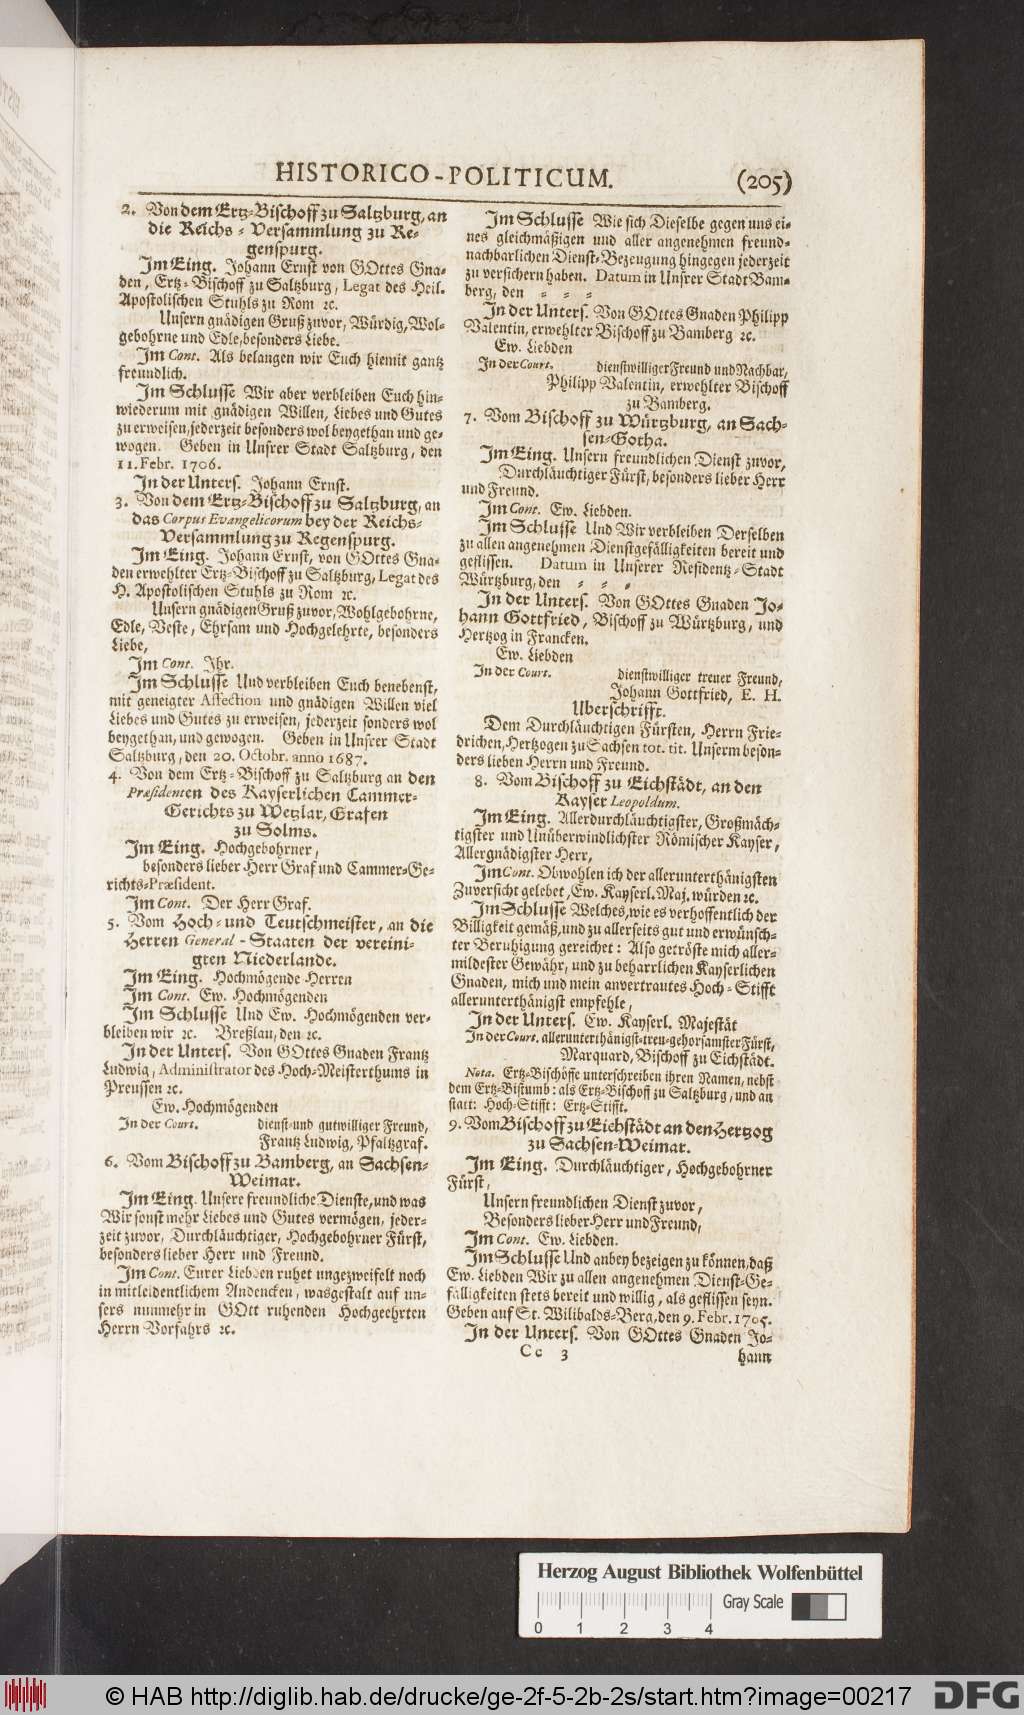 HISTORICO-POLITICUM. (205)
2. Von dem Ertz-Bischoff zu Saltzburg, an
die Reichs-Versammlung zu Re-
genspurg.
Im Eing. Johann Ernst von GOttes Gna-
den, Ertz-Bischoff zu Saltzburg, Legat des Heil.
Apostolischen Stuhls zu Rom ꝛc.
Unsern gnädigen Gruß zuvor, Würdig, Wol-
gebohrne und Edle, besonders Liebe.
Im Cont. Als belangen wir Euch hiemit gantz
freundlich.
Im Schlusse Wir aber verbleiben Euch hin-
wiederum mit gnädigen Willen, Liebes und Gutes
zu erweisen, jederzeit besonders wol beygethan und ge-
wogen. Geben in Unsrer Stadt Saltzburg, den
11. Febr. 1706.
In der Unters. Johann Ernst.
3. Von dem Ertz-Bischoff zu Saltzburg, an
das Corpus Evangelicorum bey der Reichs-
Versammlung zu Regenspurg.
Im Eing. Johann Ernst, von GOttes Gna-
den erwehlter Ertz-Bischoff zu Saltzburg, Legat des
H. Apostolischen Stuhls zu Rom ꝛc.
Unsern gnädigen Gruß zuvor, Wohlgebohrne,
Edle, Veste, Ehrsam und Hochgelehrte, besonders
Liebe,
Im Cont. Ihr.
Im Schlusse Und verbleiben Euch benebenst,
mit geneigter Affection und gnädigen Willen viel
Liebes und Gutes zu erweisen, jederzeit sonders wol
beygethan, und gewogen. Geben in Unsrer Stadt
Saltzburg, den 20. Octobr. anno 1687.
4. Von dem Ertz-Bischoff zu Saltzburg an den
Præsidenten des Kayserlichen Cammer-
Gerichts zu Wetzlar, Grafen
zu Solms.
Im Eing. Hochgebohrner,
besonders lieber Herr Graf und Cammer-Ge-
richts-Præsident.
Im Cont. Der Herr Graf.
5. Vom Hoch- und Teutschmeister, an die
Herren General-Staaten der vereini-
gten Niederlande.
Im Eing. Hochmögende Herren
Im Cont. Ew. Hochmögenden
Im Schlusse Und Ew. Hochmögenden ver-
bleiben wir ꝛc. Breßlau, den ꝛc.
In der Unters. Von GOttes Gnaden Frantz
Ludwig, Administrator des Hoch-Meisterthums in
Preussen ꝛc.
Ew. Hochmögenden
In der Court. dienst-und gutwilliger Freund,
Frantz Ludwig, Pfaltzgraf.
6. Vom Bischoff zu Bamberg, an Sachsen-
Weimar.
Im Eing. Unsere freundliche Dienste, und was
Wir sonst mehr Liebes und Gutes vermögen, jeder-
zeit zuvor, Durchläuchtiger, Hochgebohrner Fürst,
besonders lieber Herr und Freund.
Im Cont. Eurer Liebden ruhet ungezweifelt noch
in mitleidentlichem Andencken, wasgestalt auf un-
sers nunmehr in GOtt ruhenden Hochgeehrten
Herrn Vorfahrs ꝛc.
Im Schlusse Wie sich Dieselbe gegen uns ei-
nes gleichmäßigen und aller angenehmen freund-
nachbarlichen Dienst-Bezeugung hingegen jederzeit
zu versichern haben. Datum in Unsrer Stadt Bam-
berg, den - - -
In der Unters. Von GOttes Gnaden Philipp
Valentin, erwehlter Bischoff zu Bamberg ꝛc.
Ew. Liebden
In der Court. dienstwilliger Freund und Nachbar,
Philipp Valentin, erwehlter Bischoff
zu Bamberg.
7. Vom Bischoff zu Würtzburg, an Sach-
sen-Gotha.
Im Eing. Unsern freundlichen Dienst zuvor,
Durchläuchtiger Fürst, besonders lieber Herr
und Freund.
Im Cont. Ew. Liebden.
Im Schlusse Und Wir verbleiben Derselben
zu allen angenehmen Dienstgefälligkeiten bereit und
geflissen. Datum in Unserer Residentz-Stadt
Würtzburg, den - - -
In der Unters. Von GOttes Gnaden Jo-
hann Gottfried, Bischoff zu Würtzburg, und
Hertzog in Francken.
Ew. Liebden
In der Court. dienstwilliger treuer Freund,
Johann Gottfried, E. H.
Uberschrifft.
Dem Durchläuchtigen Fürsten, Herrn Frie-
drichen, Hertzogen zu Sachsen tot. tit. Unserm beson-
ders lieben Herrn und Freund.
8. Vom Bischoff zu Eichstädt, an den
Kayser Leopoldum.
Im Eing. Allerdurchläuchtigster, Großmäch-
tigster und Unüberwindlichster Römischer Kayser,
Allergnädigster Herr,
Im Cont. Obwohlen ich der allerunterthänigsten
Zuversicht gelebet, Ew. Kayserl. Maj. würden ꝛc.
Im Schlusse Welches, wie es verhoffentlich der
Billigkeit gemäß, und zu allerseits gut und erwünsch-
ter Beruhigung gereichet: Also getröste mich aller-
mildester Gewähr, und zu beharrlichen Kayserlichen
Gnaden, mich und mein anvertrautes Hoch-Stifft
allerunterthänigst empfehle,
In der Unters. Ew. Kayserl. Majestät
In der Court. allerunterthänigst-treu-gehorsamster Fürst,
Marquard, Bischoff zu Eichstädt.
Nota. Ertz-Bischöffe unterschreiben ihren Namen, nebst
dem Ertz-Bistumb: als Ertz-Bischoff zu Saltzburg, und an
statt: Hoch-Stifft: Ertz-Stifft.
9. Vom Bischoff zu Eichstädt an den Hertzog
zu Sachsen-Weimar.
Im Eing. Durchläuchtiger, Hochgebohrner
Fürst,
Unsern freundlichen Dienst zuvor,
Besonders lieber Herr und Freund,
Im Cont. Ew. Liebden.
Im Schlusse Und anbey bezeigen zu können, daß
Ew. Liebden Wir zu allen angenehmen Dienst-Ge-
fälligkeiten stets bereit und willig, als geflissen seyn.
Geben auf St. Wilibalds-Berg, den 9. Febr. 1705.
In der Unters. Von GOttes Gnaden Jo-
Cc 3 hann
Herzog August Bibliothek Wolfenbüttel
Gray Scale
0 1 2 3 4
© HAB http://diglib.hab.de/drucke/ge-2f-5-2b-2s/start.htm?image=00217
DFG